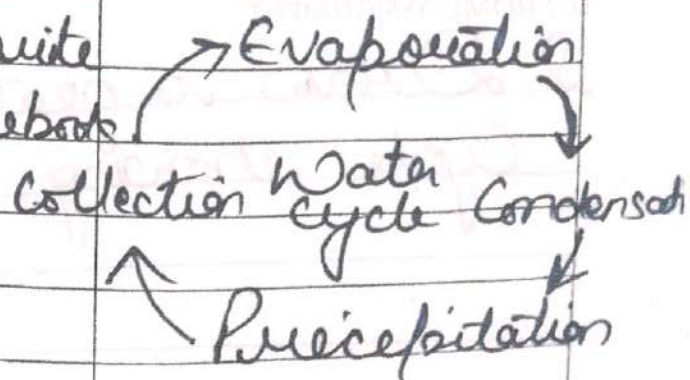 uite
Evaporation
ebook
Collection Water cycle Condensati
Precepitation